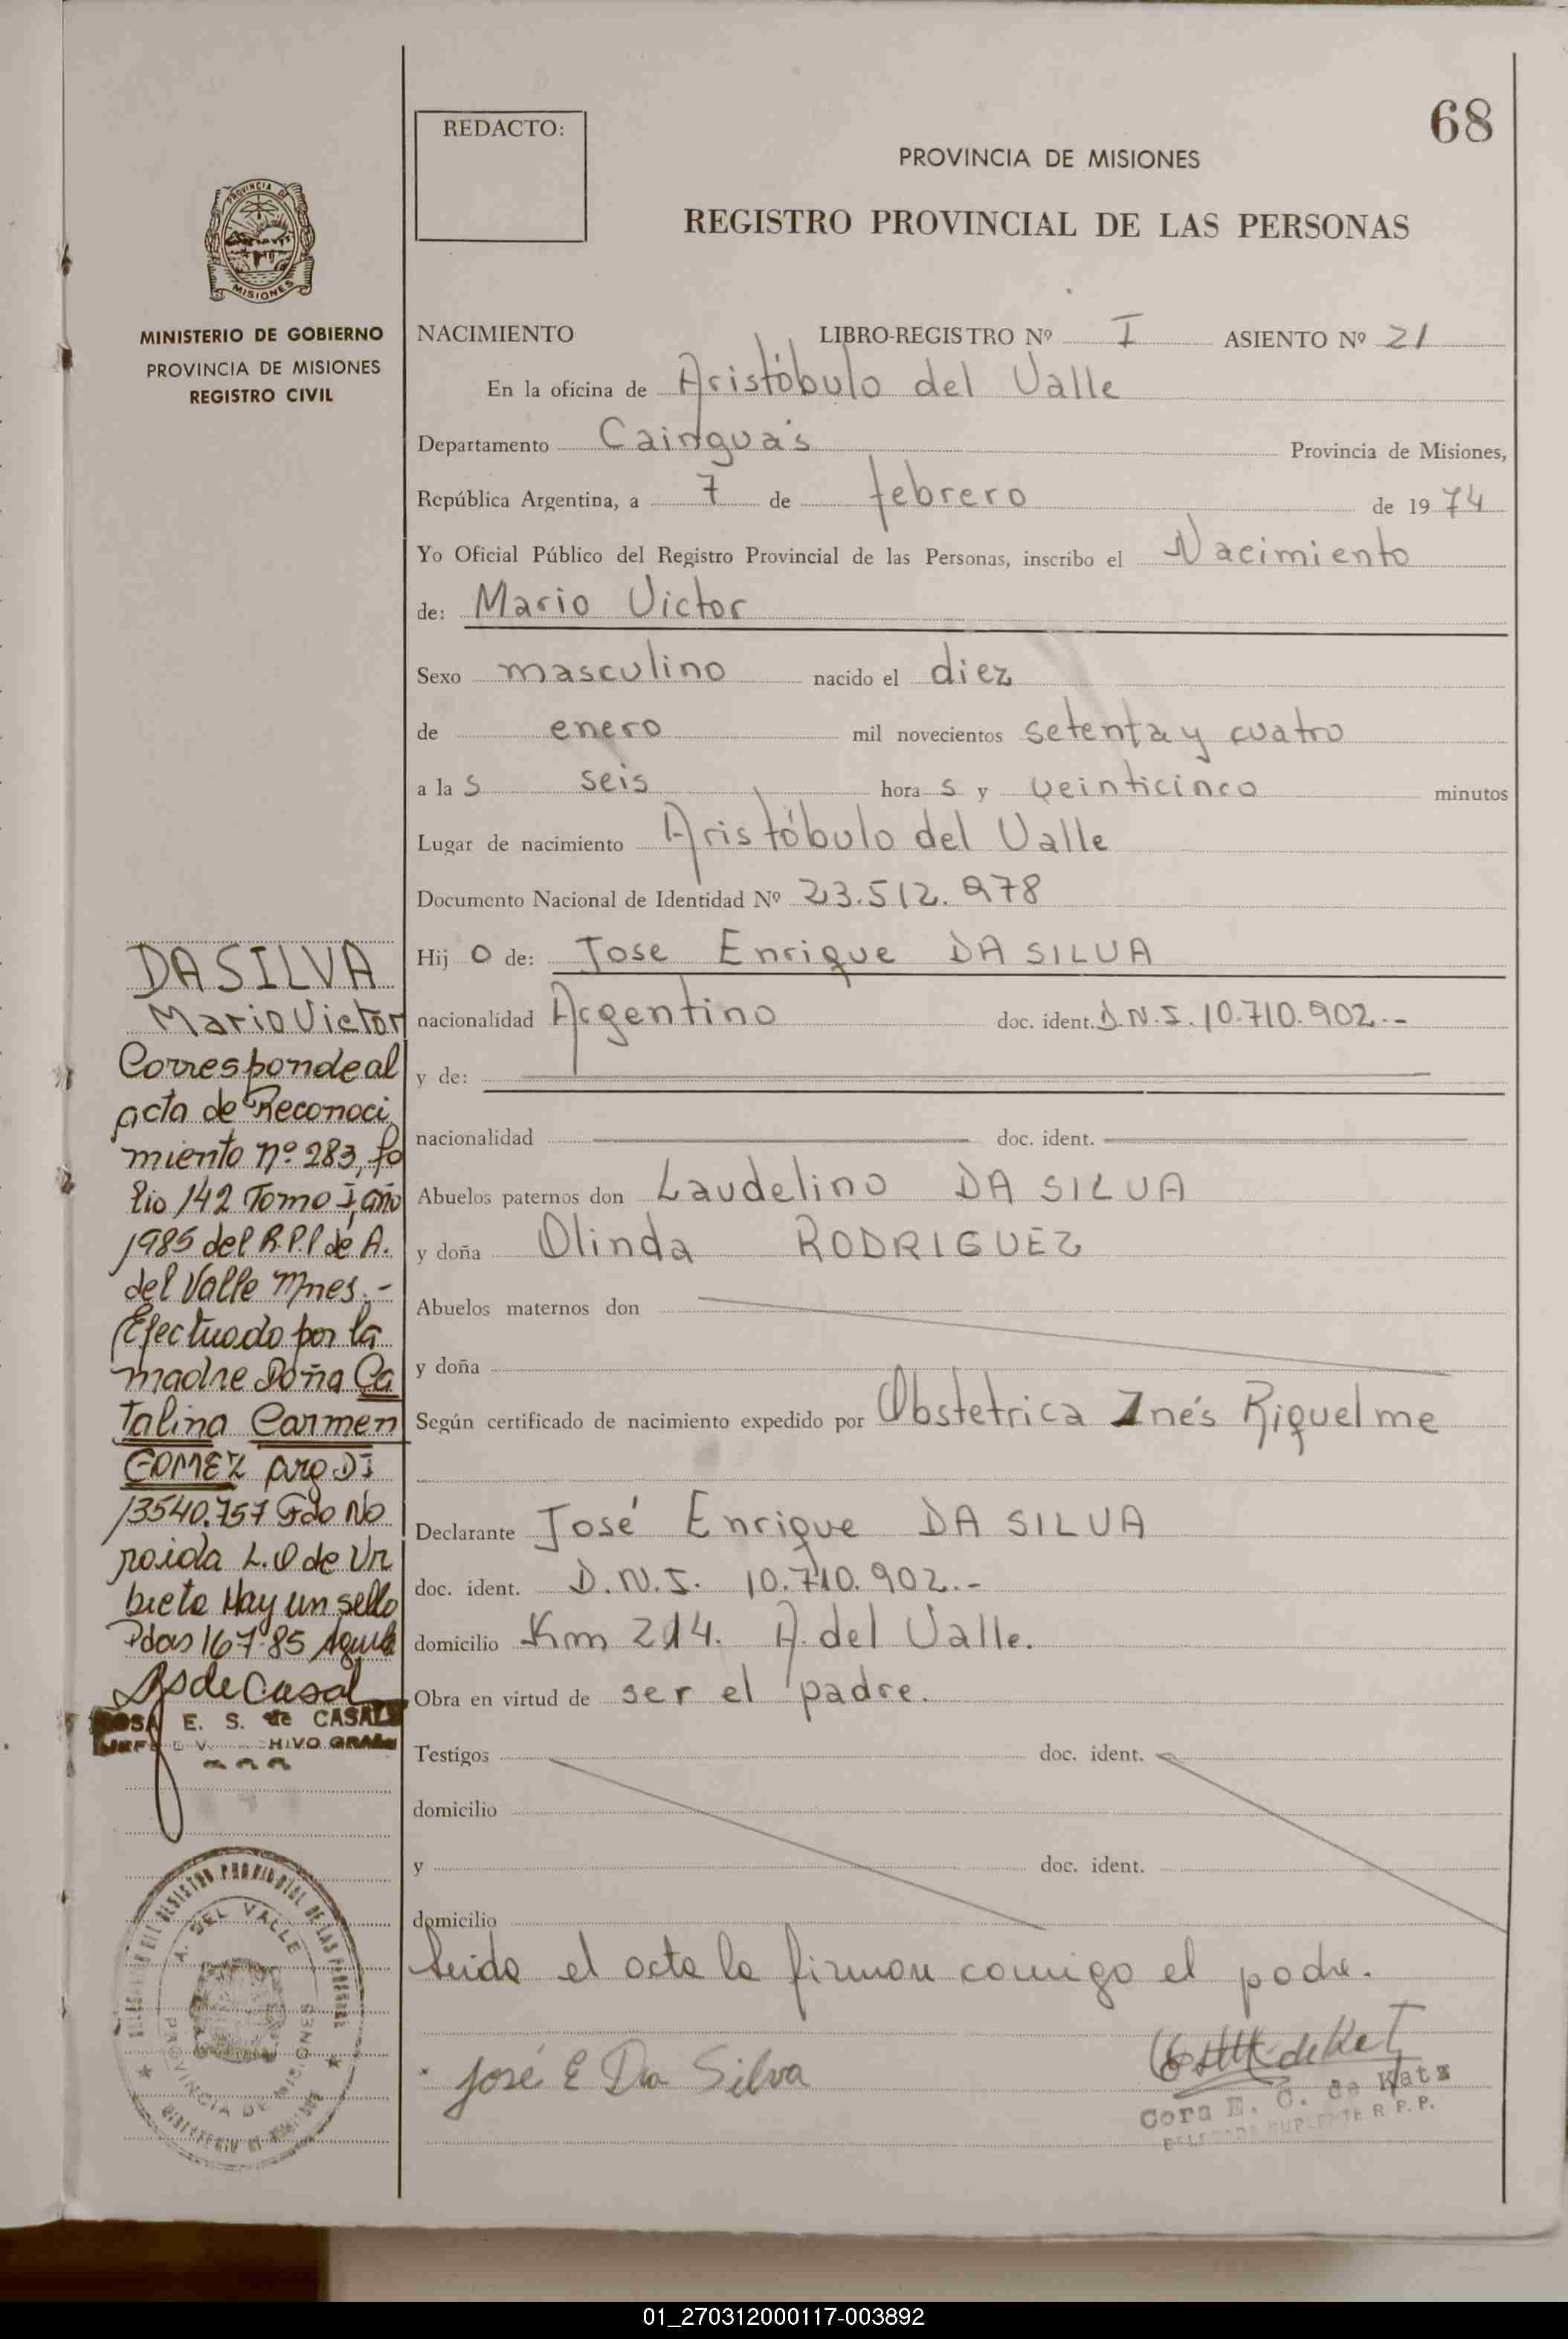 68
REDACTO:
PROVINCIA DE MISIONES
REGISTRO PROVINCIAL DE LAS PERSONAS
PROVINCIA DE
MISIONES
MINISTERIO DE GOBIERNO
PROVINCIA DE MISIONES
REGISTRO CIVIL
NACIMIENTO LIBRO-REGISTRO Nº I ASIENTO Nº 21
En la oficina de Aristóbulo del Valle
Departamento Cainguás Provincia de Misiones,
República Argentina, a 7 de febrero de 1974
Yo Oficial Público del Registro Provincial de las Personas, inscribo el Nacimiento
de: Mario Victor
Sexo masculino nacido el diez
de enero mil novecientos setenta y cuatro
a la s seis hora s y veinticinco minutos
Lugar de nacimiento Aristóbulo del Valle
Documento Nacional de Identidad Nº 23.512.978
Hij o de: Jose Enrique DA SILVA
nacionalidad Argentino doc. ident. D.N.I. 10.710.902.-
y de:
nacionalidad doc. ident.
Abuelos paternos don Laudelino DA SILVA
y doña Olinda RODRIGUEZ
Abuelos maternos don
y doña
Según certificado de nacimiento expedido por Obstetrica Inés Riquelme
Declarante José Enrique DA SILVA
doc. ident. D.N.I. 10.710.902.-
domicilio Km 214. A. del Valle.
Obra en virtud de ser el padre.
Testigos doc. ident.
domicilio
y doc. ident.
domicilio
Leida el acta la firman conmigo el padre.
José E Da Silva
Cora E. C. de Katz
SUPLENTE R.P.P.
DA SILVA
Mario Victor
Corresponde al
acta de Reconoci
miento nº 283, fo
lio 142 Tomo I, año
1985 del R.P.P de A.
del Valle Mnes.-
Efectuado por la
madre Doña Ca
talina Carmen
GOMEZ arg DI
13540.757 Fdo No
roida L. O de Ur
bieta Hay un sello
Pdas 16-7-85
ROSA E. S. de CASALS
A. DEL VALLE
PROVINCIA DE MISIONES
REGISTRO PROVINCIAL DE LAS PERSONAS
01_270312000117-003892